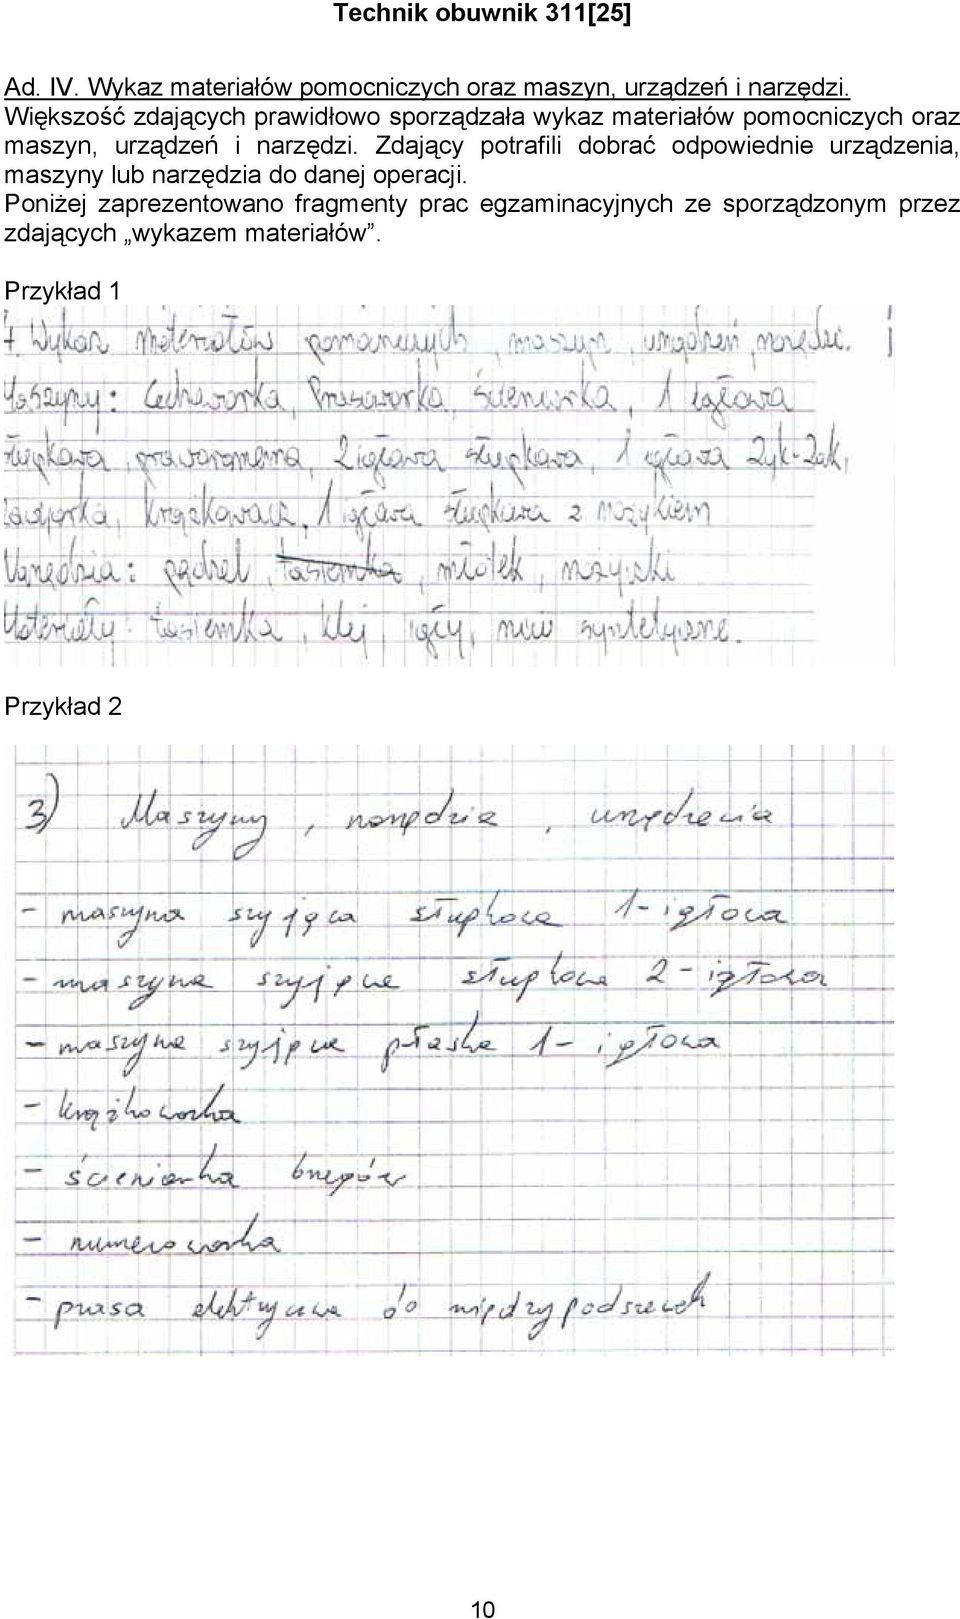 Technik obuwnik 311[25]
Ad. IV. Wykaz materiałów pomocniczych oraz maszyn, urządzeń i narzędzi.
Większość zdających prawidłowo sporządzała wykaz materiałów pomocniczych oraz
maszyn, urządzeń i narzędzi. Zdający potrafili dobrać odpowiednie urządzenia,
maszyny lub narzędzia do danej operacji.
Poniżej zaprezentowano fragmenty prac egzaminacyjnych ze sporządzonym przez
zdających „wykazem materiałów”.
Przykład 1
Wykaz materiałów pomocniczych, maszyn, urządzeń, narzędzi.
Maszyny: Cechowarka, Prasowarka, ścieniarka, 1 igłowa
słupkowa, praworamienna, 2 igłowa słupkowa, 1 igłowa Zyk-Zak,
krążkowacz, 1 igłowa słupkowa z nożykiem
Narzędzia: pędzel, tasiemka, młotek, nożyczki
Materiały: tasiemka, klej, igły, nici syntetyczne.
Przykład 2
3) Maszyny, narzędzia, urządzenia
- maszyna szyjąca słupkowa 1-igłowa
- maszyna szyjąca słupkowa 2-igłowa
- maszyna szyjąca płaska 1-igłowa
- krążkowarka
- ścieniarka brzegów
- numerowarka
- prasa elektryczna do międzypodszewek
10